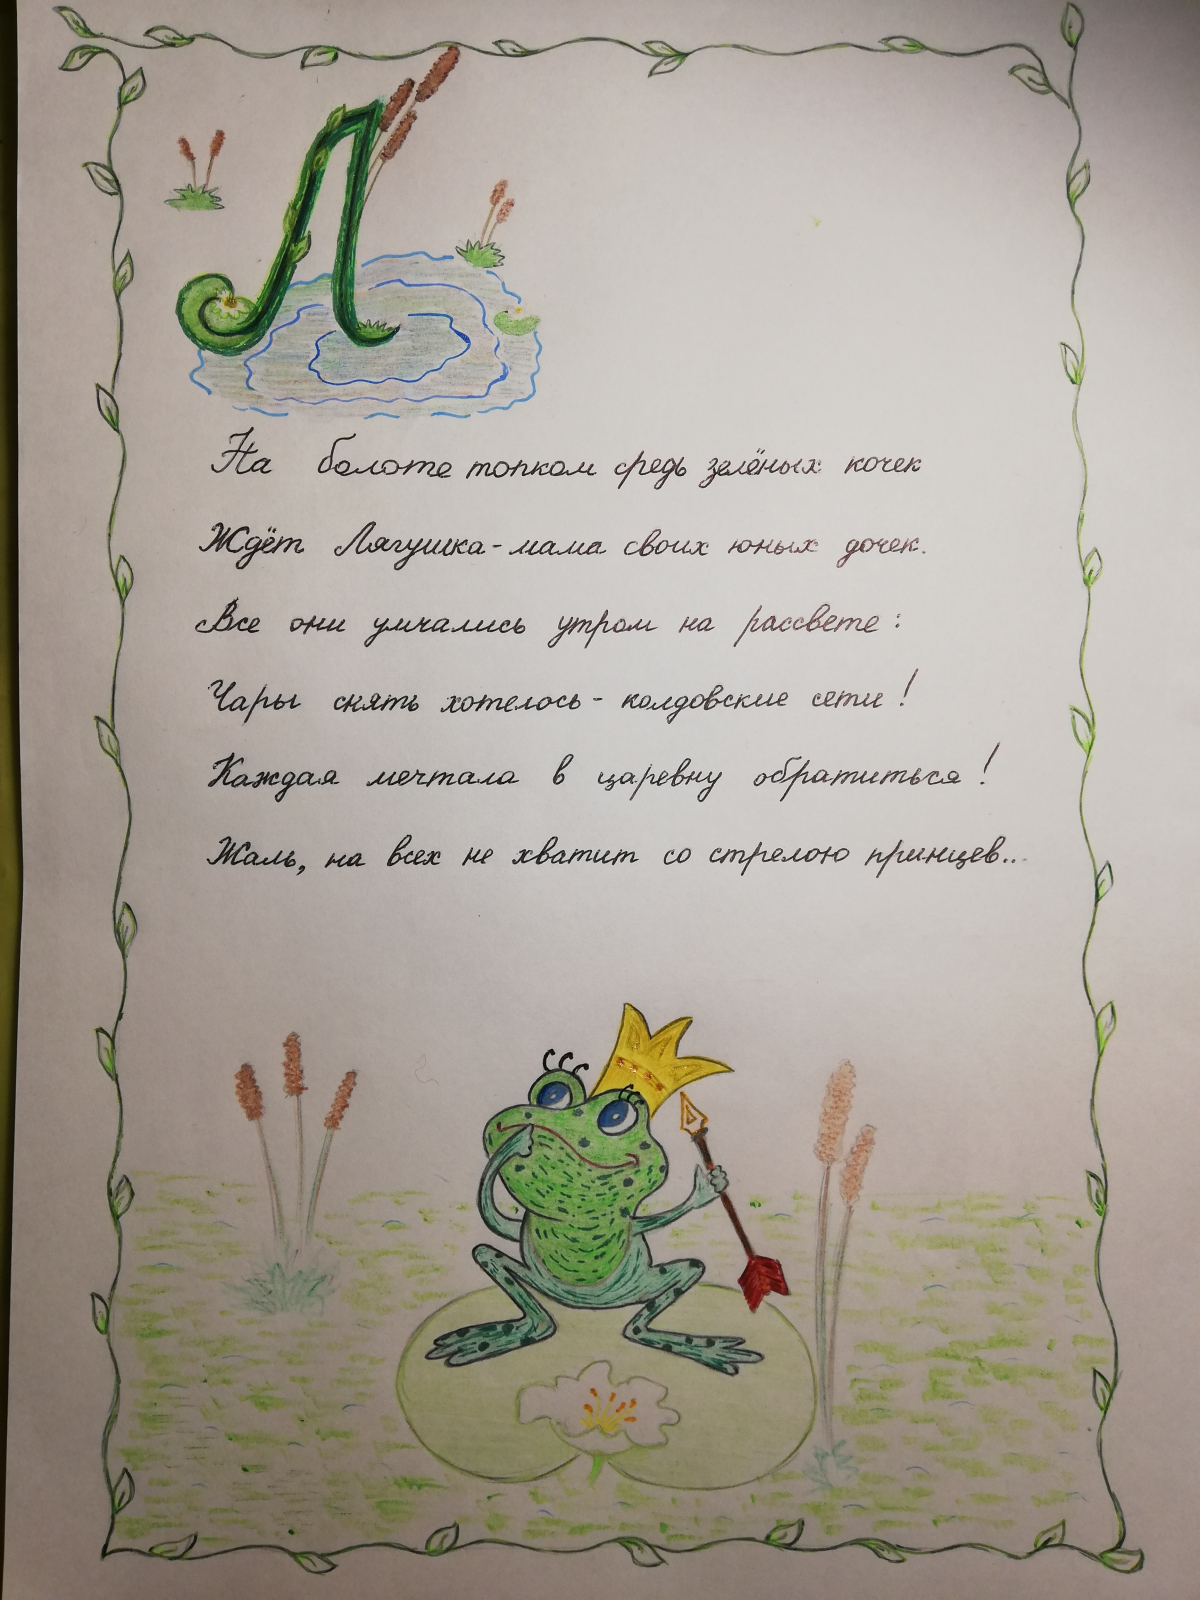 Л
На болоте топком средь зелёных кочек
Ждёт Лягушка-мама своих юных дочек.
Все они умчались утром на рассвете:
Чары снять хотелось - колдовские сети!
Каждая мечтала в царевну обратиться!
Жаль, на всех не хватит со стрелою принцев...